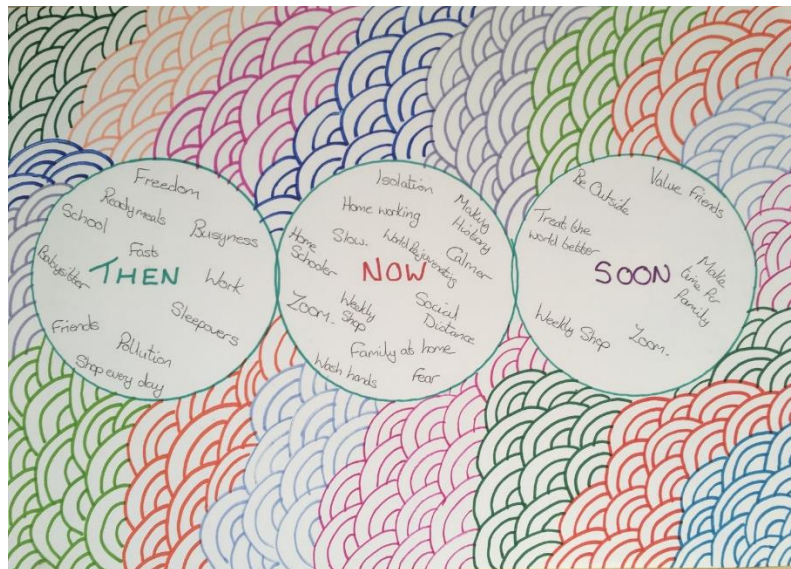 Freedom
Ready meals
School
Busyness
Fast
Babysitter
THEN
Work
Sleepovers
Friends
Pollution
Shop every day
Isolation
Making
History
Home working
Home
Schooler
Slow.
World Rejuvenating
Calmer
NOW
Zoom.
Weekly
Shop
Social
Distance
Family at home
Wash hands
Fear
Be Outside
Value Friends
Treat the
world better
SOON
Make
time for
family
Weekly Shop
Zoom.